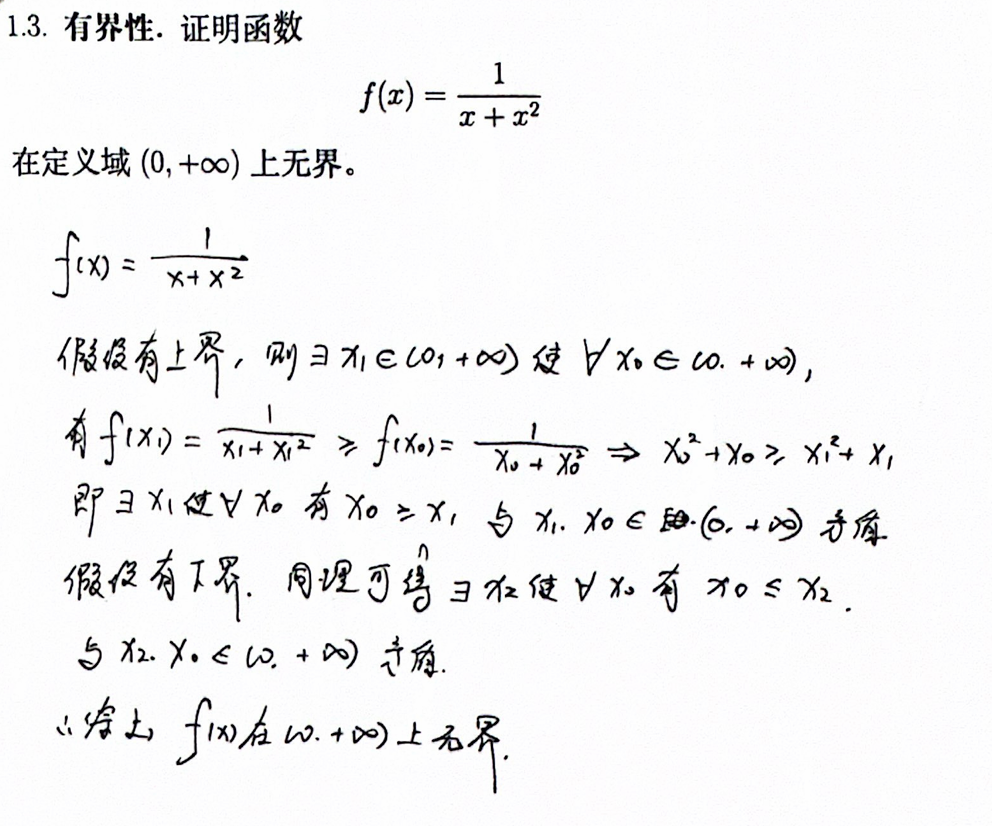 1.3. 有界性. 证明函数
f(x) = 1/(x + x²)
在定义域 (0, +∞) 上无界。
f(x) = 1/(x + x²)
假设有上界, 则 ∃ x₁ ∈ (0, +∞) 使 ∀ x₀ ∈ (0. +∞),
有 f(x₁) = 1/(x₁ + x₁²) ≥ f(x₀) = 1/(x₀ + x₀²) ⇒ x₀² + x₀ ≥ x₁² + x₁
即 ∃ x₁ 使 ∀ x₀ 有 x₀ ≥ x₁ 与 x₁. x₀ ∈ (0. +∞) 矛盾
假设有下界. 同理可得 ∃ x₂ 使 ∀ x₀ 有 x₀ ≤ x₂.
与 x₂. x₀ ∈ (0. +∞) 矛盾.
∴ 综上 f(x) 在 (0. +∞) 上无界.